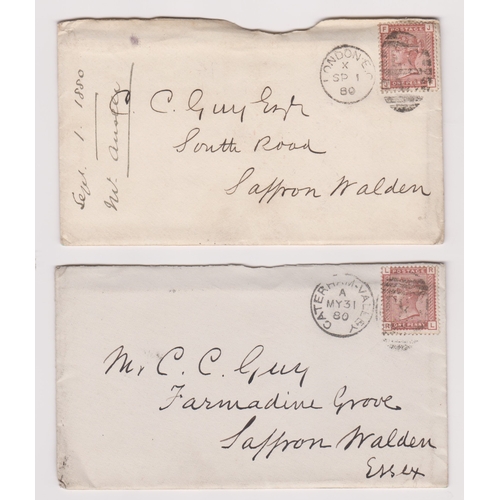 Sept. 1. 1880
LONDON E.C
X
SP 1
80
POSTAGE
F J
C. C. Guy Esqr
South Road
Saffron Walden
CATERHAM-VALLEY
A
MY 31
80
L POSTAGE R
R ONE PENNY L
Mr. C. C. Guy
Farmadine Grove
Saffron Walden
Essex